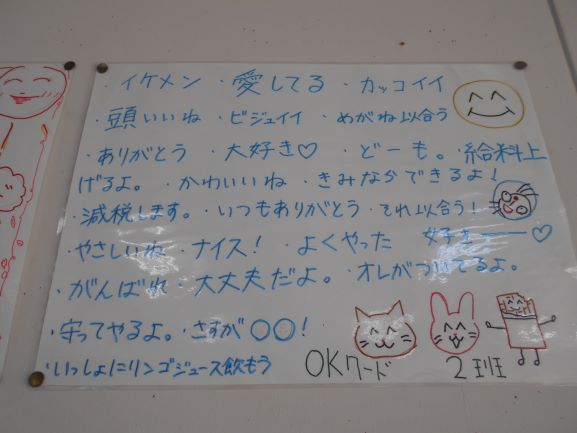 ・イケメン ・愛してる ・カッコイイ
・頭いいね ・ビジュイイ ・めがね以合う
・ありがとう ・大好き♡ ・どーも。・給料上
げるよ。・かわいいね ・きみならできるよ!
・減税します。・いつもありがとう ・それ以合う!
・やさしいね ・ナイス! ・よくやった 好きっー♡
・がんばれ ・大丈夫だよ。・オレがついてるよ。
・守ってやるよ。・さすが○○!
・いっしょにリンゴジュース飲もう
OKワード 2班